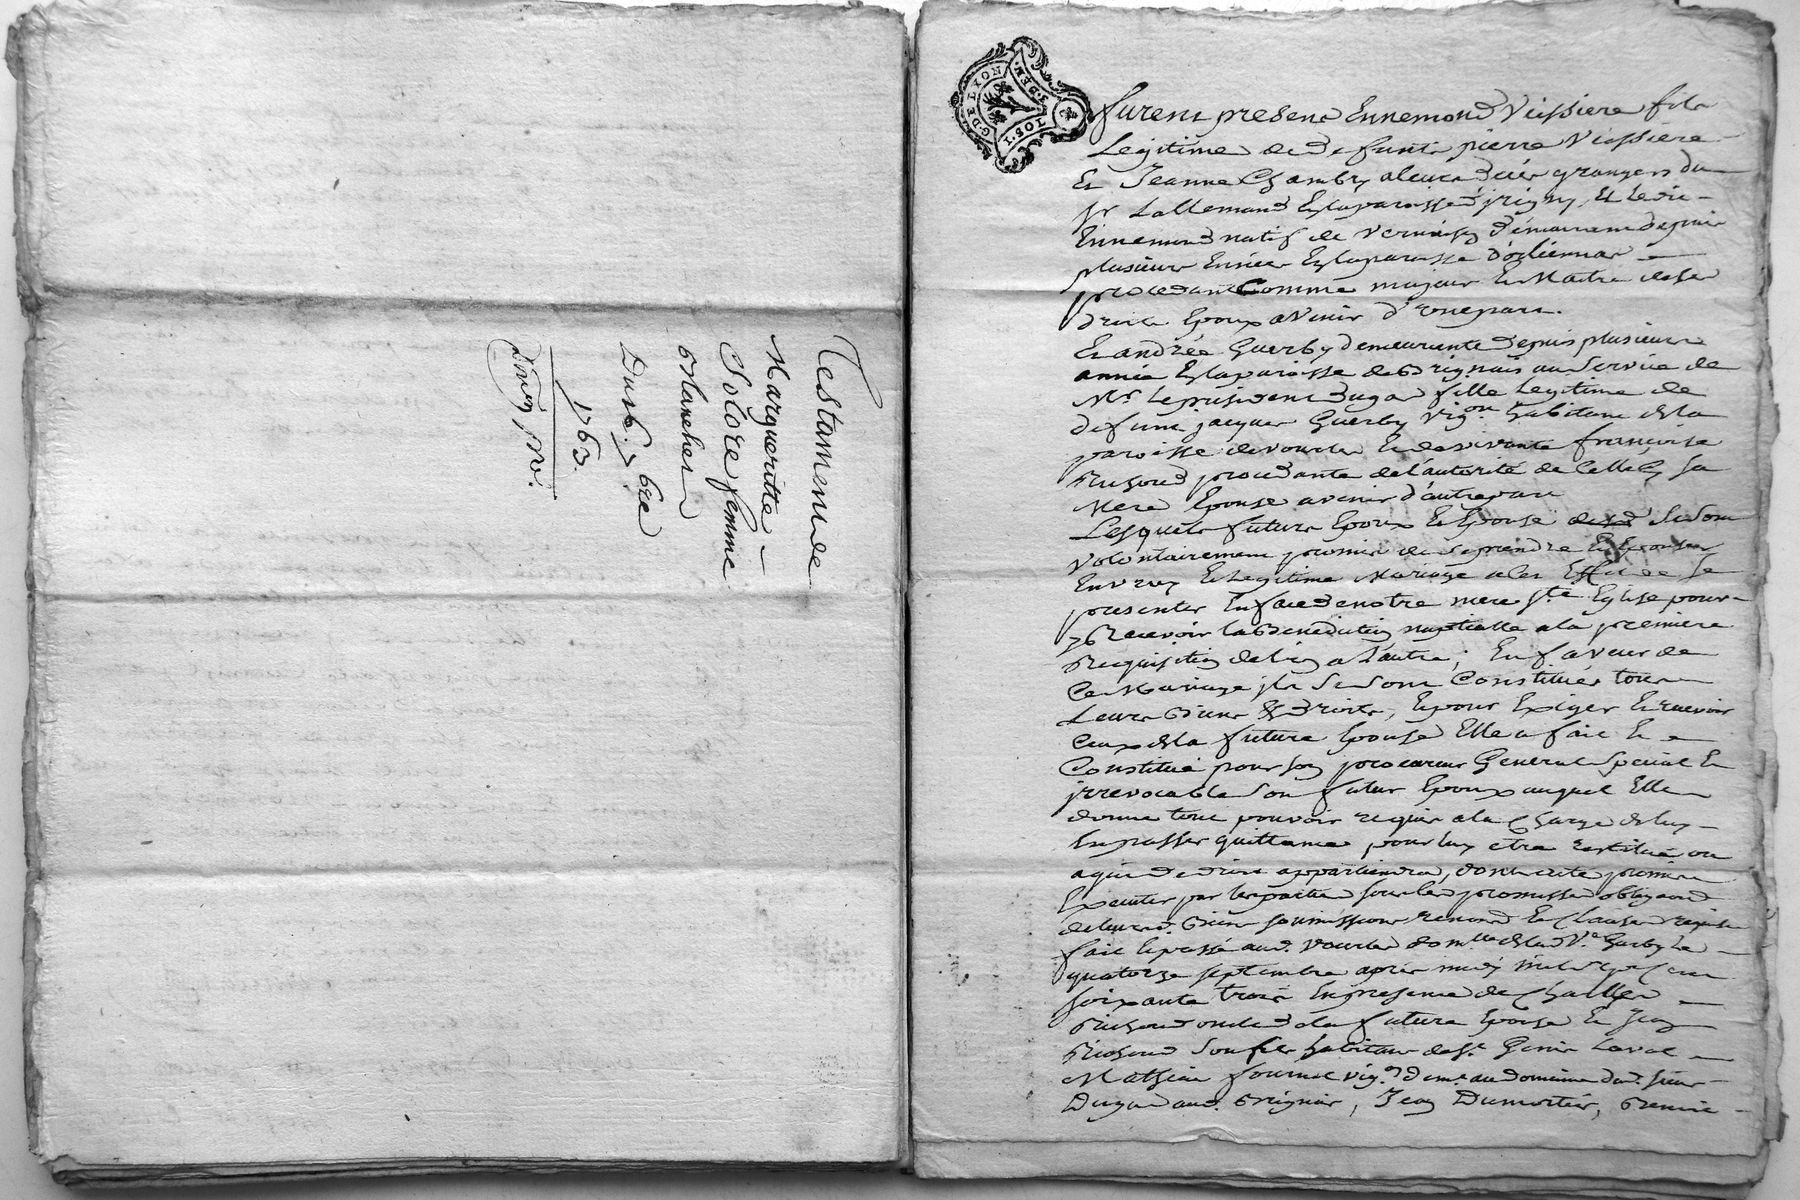 Testament de
Margueritte
Solore femme
Blanchet
Du 16. 7bre
1763.
G. DE LYON
1 SOL. 3. DEN.
furent present Ennemond Vissiere fils
Legitime de defunts pierre Vissiere
Et Jeanne Chambry grangers du
Sr Lallemand En la paroisse d'jrigny, Et ledit
Ennemond natif de Vernaison demeurant depuis
plusieurs Années En la paroisse d'orliennas
procedant Comme majeur Et Maitre de ses
droits Epoux avenir d'une part.
Et andrée Guerby demeurante depuis plusieurs
année En la paroisse de Brignais au Service de
Mr. Le president Dugas fille Legitime de
defunt jacques Guerby Vig.on habitant de la
paroisse de vourles Et de vivante françoise
procedante de l'autorité de Celle cy sa
Mere Epouse avenir d'autre part
Lesquels futurs Epoux Et Epouse Se sont
volontairement promis de Se prendre Et Epouser
En vray Et Legitime Mariage a Cet Effet de Se
presenter En face de notre mere Ste. Eglise pour
y Recevoir la Benediction nuptialle a la premiere
Requisition de l'un a l'autre; En faveur de
Ce Mariage jls Se Sont Constitués tous
Leurs Biens & Droits, Et pour Exiger Et recevoir
Ceux de la future Epouse Elle a fait Et
Constitué pour son procureur General Special Et
jrrevocable Son futur Epoux auquel Elle
donne tout pouvoir requis a la Charge de luy
En passer quittance pour luy etre restitué ou
a qui de droit appartiendra, dont acte promis
Executer par les parties sous les promesses obligeant
de leurs d. Biens soumissions renond. Et Clauses requises
fait Et passé aud. Vourles dom.lle de lad. Ve. Guerby Le
quatorze septembre après midy mil sept Cent
soixante trois En presence de Charles
oncle de la future Epouse Et Jean
Son fils habitans de St. Genis Laval
Mathieu fournet vig.n dem.t au domaine du d. sieur
Dugas aud. Brignais, Jean Dumortier,